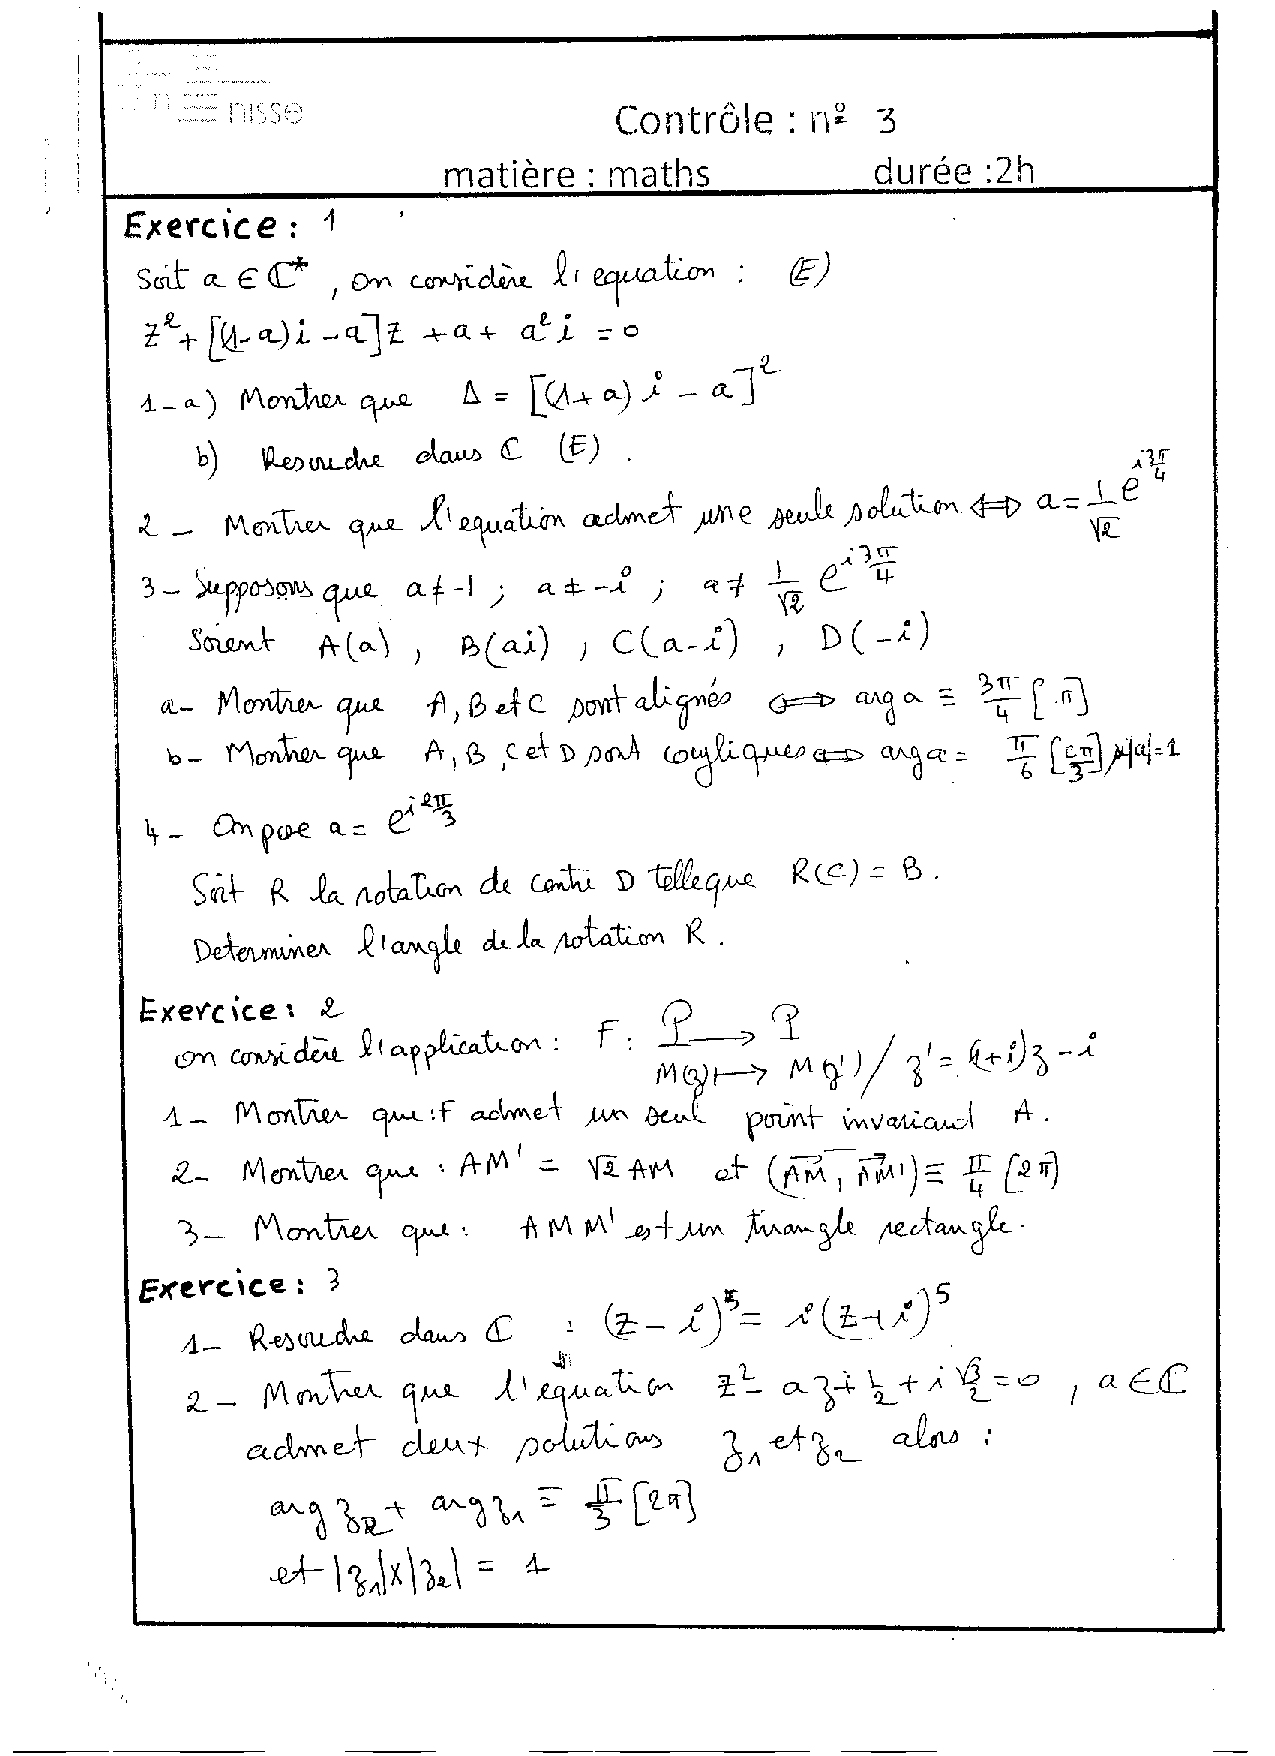 nisse
Contrôle : nº 3
matière : maths durée :2h
Exercice : 1
Soit a ∈ ℂ* , on considère l'equation : (E)
z²+ [(1-a)i -a]z +a+ a²i = 0
1-a) Montrer que Δ = [(1+a)i - a]²
b) Resoudre dans ℂ (E) .
2 - Montrer que l'equation admet une seule solution ⟺ a = 1/√2 e^(i3π/4)
3 - Supposons que a ≠ -1 ; a ≠ -i ; a ≠ 1/√2 e^(i3π/4)
Soient A(a) , B(ai) , C(a-i) , D(-i)
a- Montrer que A, B et C sont alignés ⟺ arg a ≡ 3π/4 [π]
b- Montrer que A, B, C et D sont cocyliques ⟺ arg a = π/6 [2π/3] |a|=1
4 - On pose a = e^(i2π/3)
Soit R la rotation de centre D telle que R(C) = B .
Determiner l'angle de la rotation R .
Exercice : 2
on considère l'application : F : P → P
M(z) ↦ M(z') / z' = (1+i)z - i
1 - Montrer que : F admet un seul point invariant A .
2 - Montrer que : AM' = √2 AM et (AM, AM') ≡ π/4 [2π]
3 - Montrer que : AMM' est un triangle rectangle .
Exercice : 3
1 - Resoudre dans ℂ : (z - i)⁵ = i(z+i)⁵
2 - Montrer que l'equation z² - az + 1/2 + i√3/2 = 0 , a ∈ ℂ
admet deux solutions z₁ et z₂ alors :
arg z₂ + arg z₁ ≡ π/3 [2π]
et |z₁|×|z₂| = 1